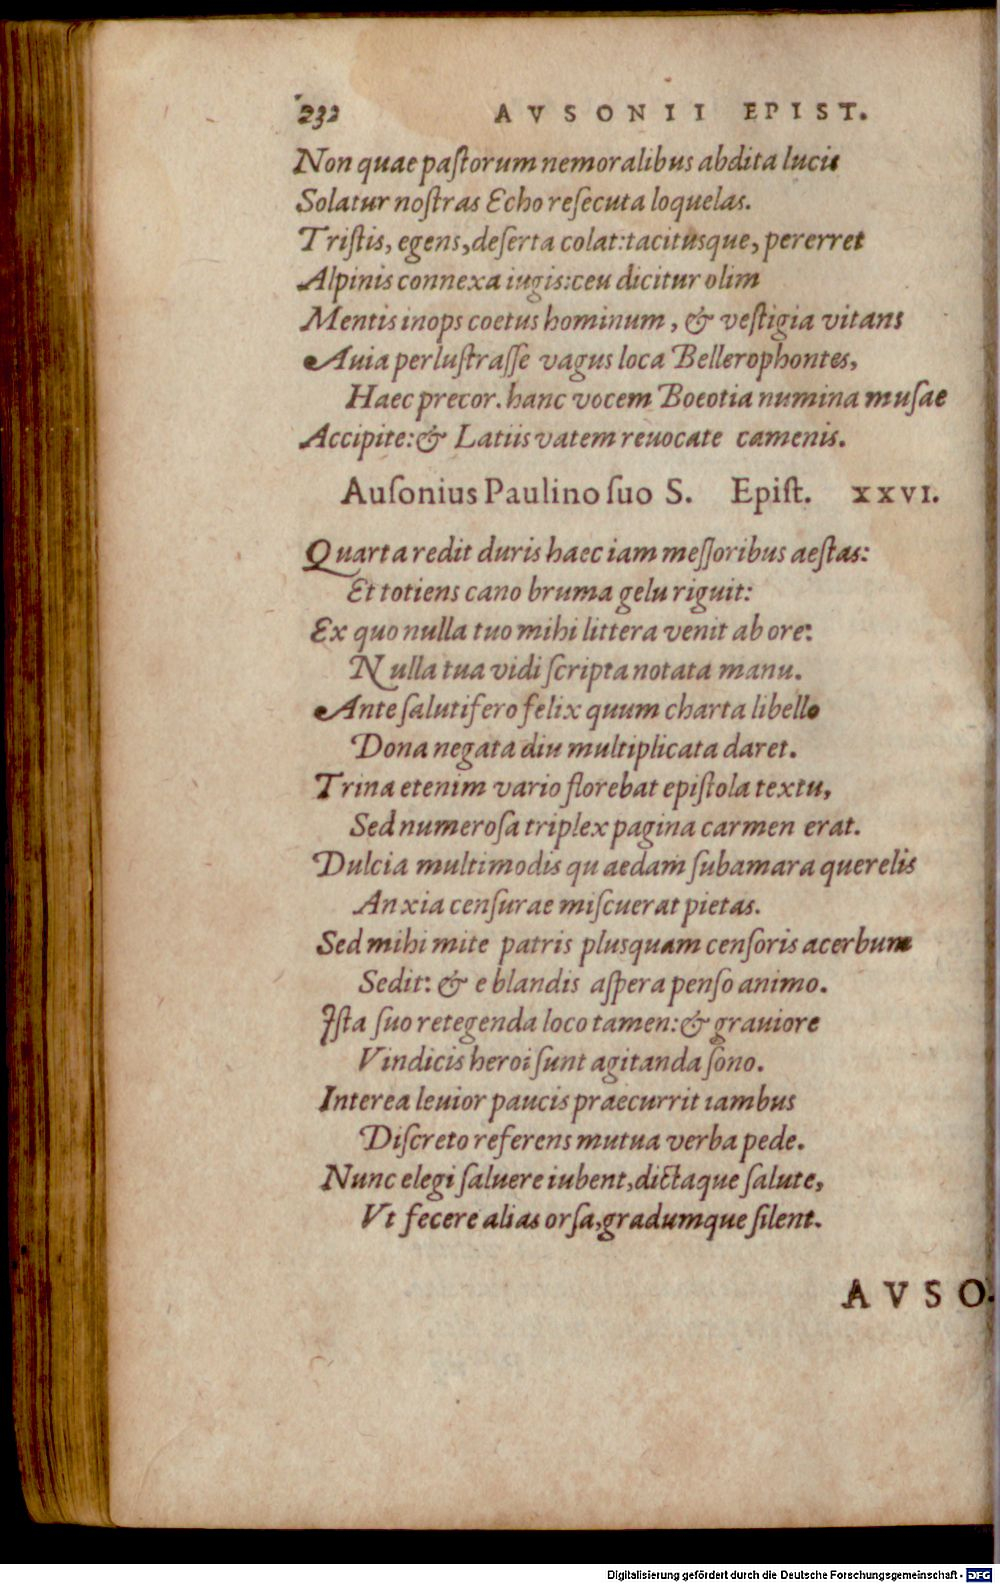 232 AVSONII EPIST.
Non quae paſtorum nemoralibus abdita lucis
Solatur noſtras Echo reſecuta loquelas.
Triſtis, egens, deſerta colat: tacitusque, pererret
Alpinis connexa iugis: ceu dicitur olim
Mentis inops coetus hominum, & veſtigia vitans
Auia perluſtraſſe vagus loca Bellerophontes,
Haec precor. hanc vocem Boeotia numina muſae
Accipite: & Latiis vatem reuocate camenis.
Auſonius Paulino ſuo S. Epiſt. XXVI.
Quarta redit duris haec iam meſſoribus aeſtas:
Et totiens cano bruma gelu riguit:
Ex quo nulla tuo mihi littera venit ab ore:
Nulla tua vidi ſcripta notata manu.
Ante ſalutifero felix quum charta libello
Dona negata diu multiplicata daret.
Trina etenim vario florebat epiſtola textu,
Sed numeroſa triplex pagina carmen erat.
Dulcia multimodis quaedam ſubamara querelis
Anxia cenſurae miſcuerat pietas.
Sed mihi mite patris plusquam cenſoris acerbum
Sedit: & e blandis aſpera penſo animo.
Iſta ſuo retegenda loco tamen: & grauiore
Vindicis heroi ſunt agitanda ſono.
Interea leuior paucis praecurrit iambus
Diſcreto referens mutua verba pede.
Nunc elegi ſaluere iubent, dictaque ſalute,
Vt fecere alias orſa, gradumque ſilent.
AVSO.
Digitalisierung gefördert durch die Deutsche Forschungsgemeinschaft - DFG